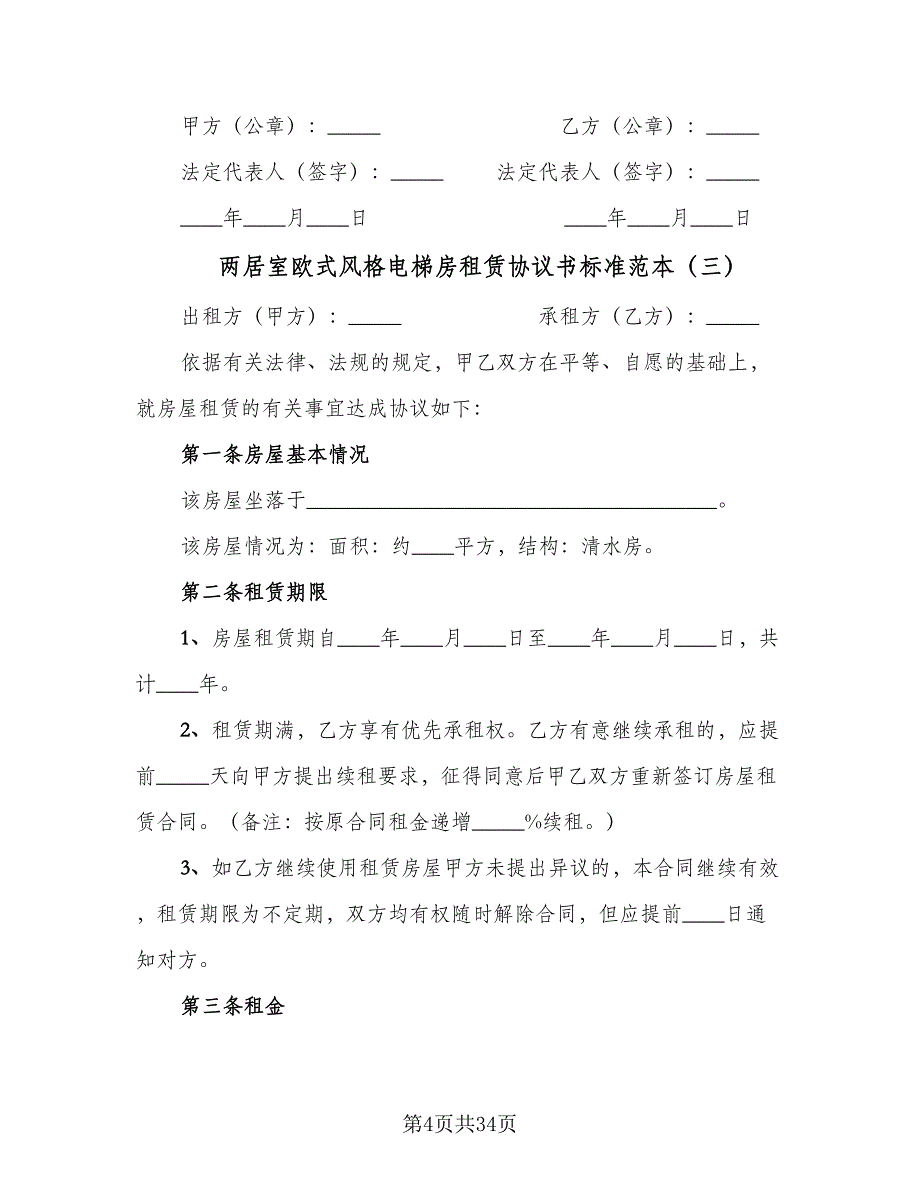 甲方（公章）：_____ 乙方（公章）：_____
法定代表人（签字）：_____ 法定代表人（签字）：_____
____年____月____日 ____年____月____日
两居室欧式风格电梯房租赁协议书标准范本（三）
出租方（甲方）：_____ 承租方（乙方）：_____
依据有关法律、法规的规定，甲乙双方在平等、自愿的基础上，
就房屋租赁的有关事宜达成协议如下：
第一条房屋基本情况
该房屋坐落于_______________________________________。
该房屋情况为：面积：约____平方，结构：清水房。
第二条租赁期限
1、房屋租赁期自____年____月____日至____年____月____日，共
计____年。
2、租赁期满，乙方享有优先承租权。乙方有意继续承租的，应提
前_____天向甲方提出续租要求，征得同意后甲乙双方重新签订房屋租
赁合同。（备注：按原合同租金递增_____%续租。）
3、如乙方继续使用租赁房屋甲方未提出异议的，本合同继续有效
，租赁期限为不定期，双方均有权随时解除合同，但应提前____日通
知对方。
第三条租金
第4页共34页